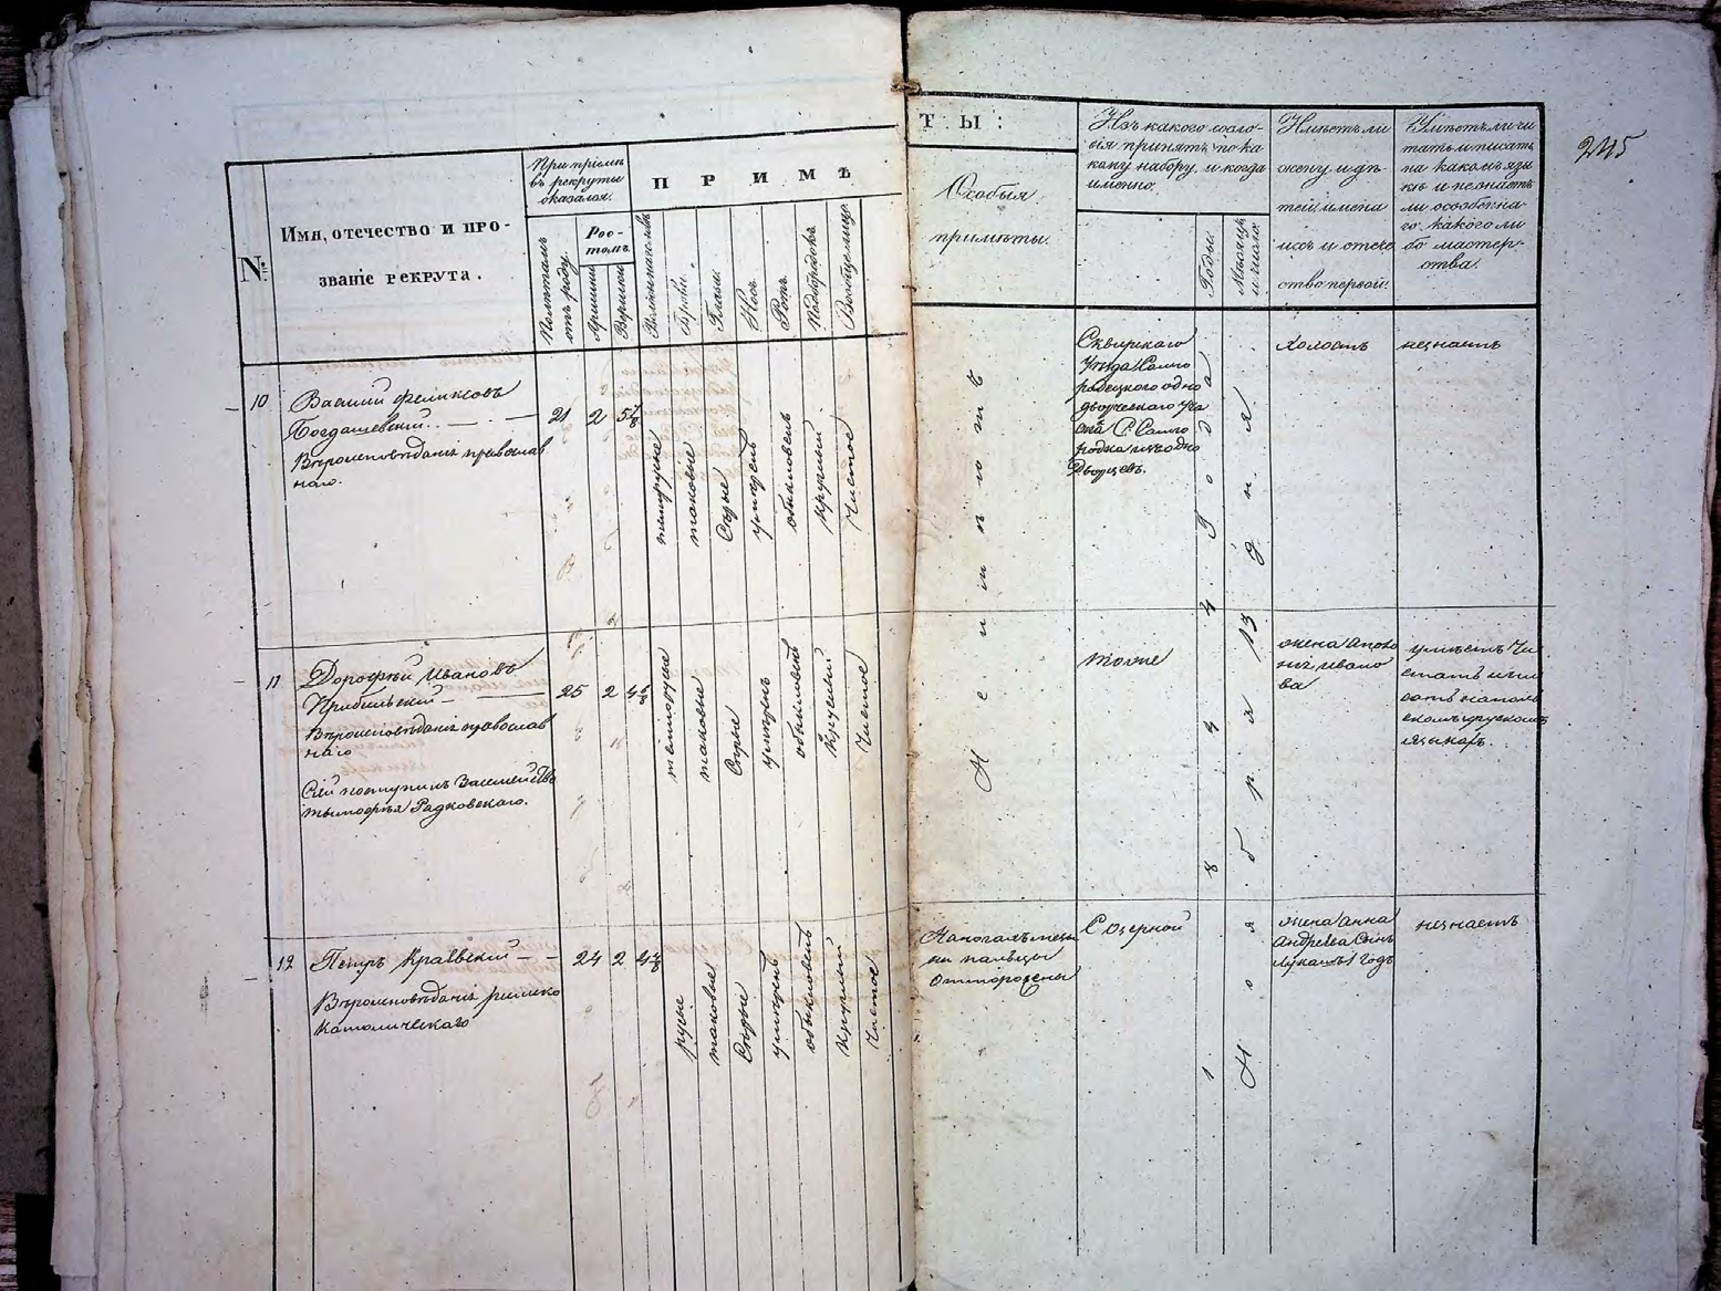 245
№
Имя, отечество и про-
званіе рекрута.
При пріемѣ
въ рекруты
оказался.
Полѣтамъ
отъ роду.
Рос-
томъ.
Аршины
Вершки
ПРИМѢ
Брови.
Глаза.
Носъ.
Ротъ.
Подбородокъ.
ТЫ:
Особыя
примѣты.
Изъ какого сосло-
вія принятъ, по ка-
кому набору, и когда
именно.
Годы.
Мѣсяцъ
и число.
Имѣетъ ли
жену и дѣ-
тей, имена
ихъ и отече
ство первой.
Умѣетъ ли чи
тать и писать
на какомъ язы
кѣ и незнаетъ
ли особенна-
го какого ли
бо мастер-
ства.
10
Василій Феликсовъ
Богдашевскій
Вѣроисповѣданія православ
наго.
21
2
темнорусые
таковые
Сѣрые
умѣренъ
обыкновенъ
круглый
Чистое
Неимѣетъ
Сквирскаго
уѣзда Самго
родецкаго одно
дворческаго уча
С. Самго
родка изъ одно
дворцевъ.
1834 Года
Ноября 13 дня
Холостъ
незнаетъ
11
Дорофѣй Ивановъ
Прибильскій
Вѣроисповѣданія православ
наго
Сей поступилъ
Тымофѣя Радковскаго.
25
2
темнорусые
таковые
Сѣрые
умѣренъ
обыкновенъ
Круглый
Чистое
тогоже
жена
Ивано
ва
умѣетъ Чи
тать и пи
сать напол
скомъ и рускомъ
языкахъ.
12
Петръ Краевскій
Вѣроисповѣданія римско
католическаго
24
2
русые
таковые
Сѣрые
умѣренъ
обыкновенъ
Круглый
Чистое
пальцы
С озерной
жена Анна
Андреева Сынъ
Лукашъ 1 годъ
незнаетъ